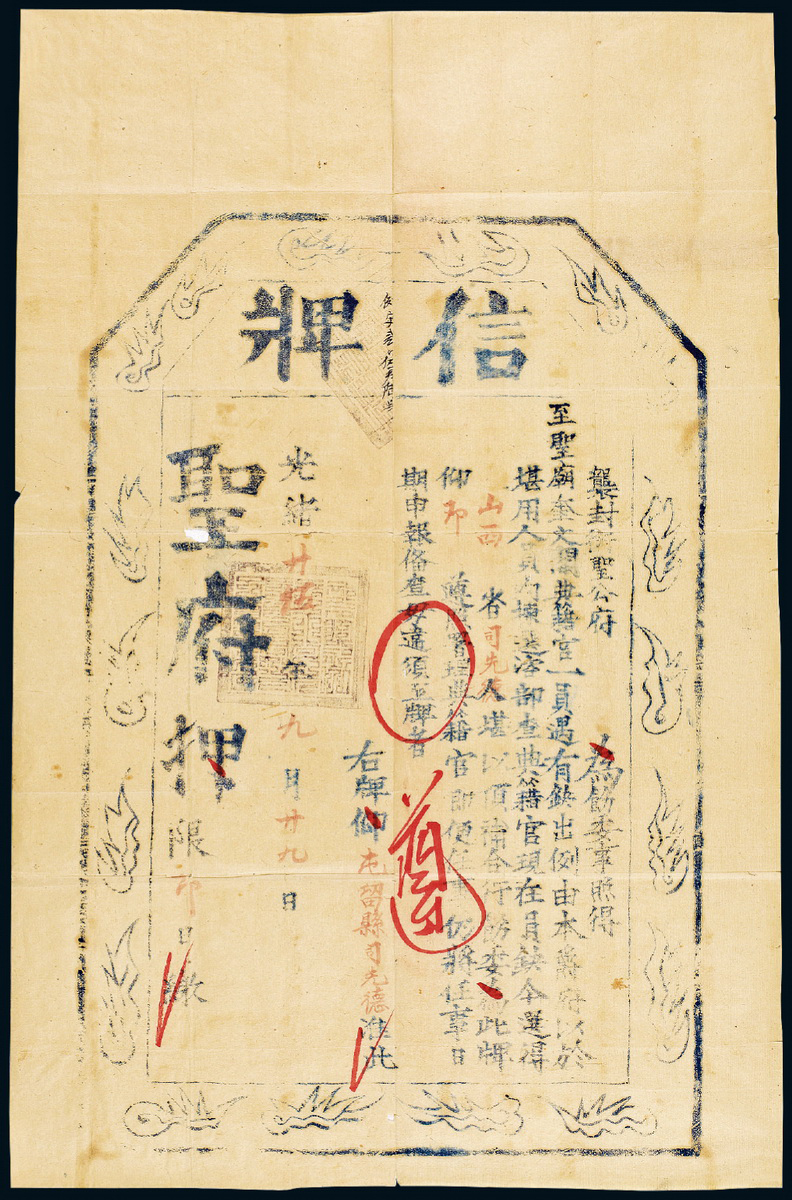 信牌
襲封衍聖公府 為飭委事照得
至聖廟奎文閣典籍官一員遇有缺出例由本爵府以於
堪用人員內揀選咨部查典籍官現在員缺今選得
山西省司先德人堪以頂補合行飭委為此牌
仰即遵照署理典籍官即便任事仍將任事日
期申報俻查毋違須至牌者
右牌仰屯留縣司先德准此
遵
光緒廿伍年九月廿九日
聖府押
限即日繳